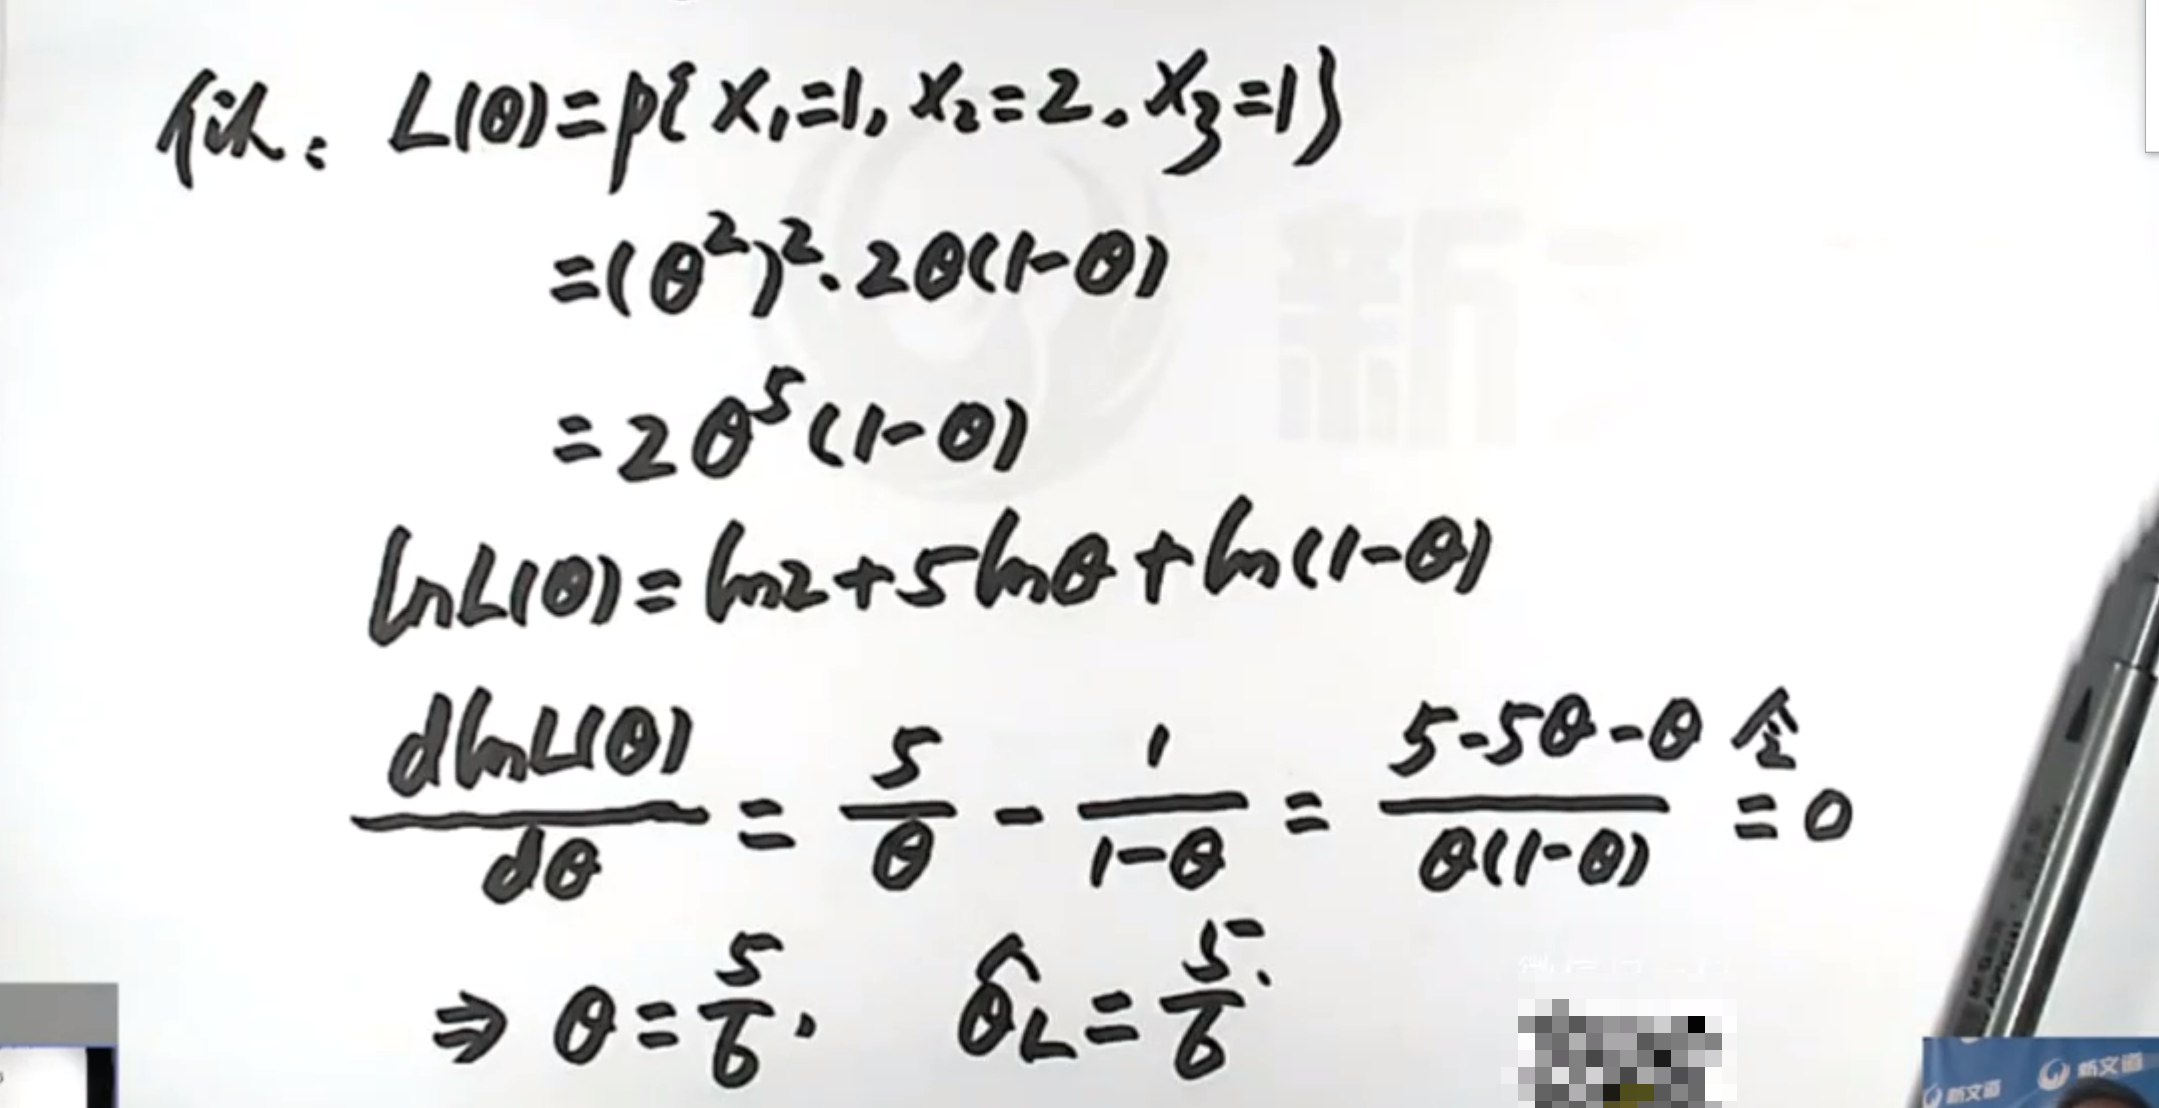 似然: L(θ)=P{X₁=1, X₂=2, X₃=1}
=(θ²)²·2θ(1-θ)
=2θ⁵(1-θ)
lnL(θ)=ln2+5lnθ+ln(1-θ)
dlnL(θ)/dθ = 5/θ - 1/(1-θ) = (5-5θ-θ)/(θ(1-θ)) 令= 0
⇒ θ=5/6, θ̂_L=5/6.
新文道
新文道